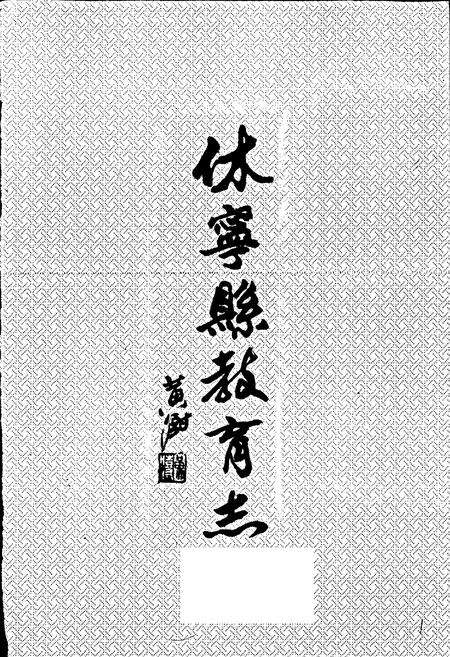 休寧縣教育志
黄澍